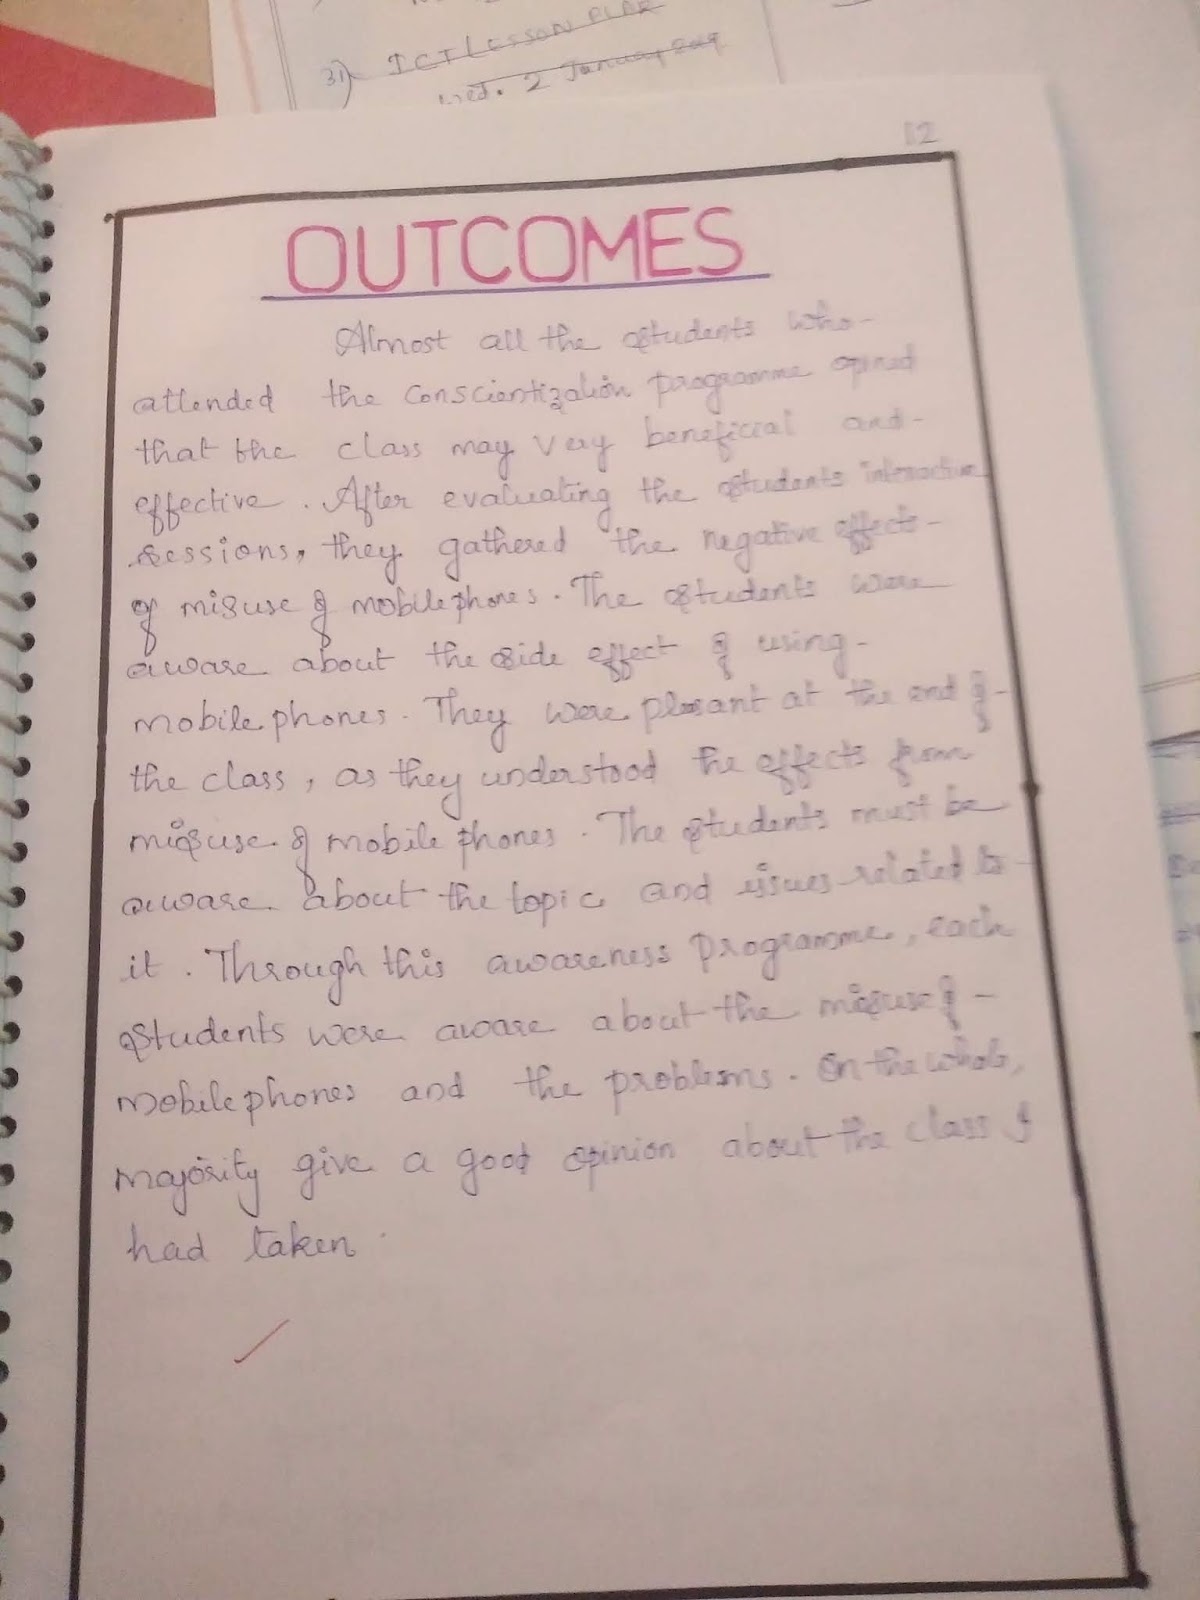 31) ICT LESSON PLAN
Wed. 2 January 2019
12
OUTCOMES
Almost all the students who-
attended the conscientization programme opined
that the class may very beneficial and-
effective. After evaluating the students interactive
sessions, they gathered the negative effects-
of misuse of mobile phones. The students were
aware about the side effect of using-
mobile phones. They were plesant at the end of-
the class, as they understood the effects from
misuse of mobile phones. The students must be
aware about the topic and issues related to-
it. Through this awareness programme, each
students were aware about the misuse of-
mobile phones and the problems. On the whole,
majority give a good opinion about the class I
had taken.